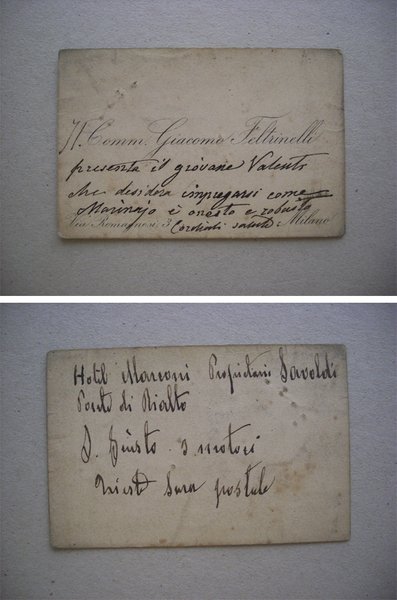 Il Comm. Giacomo Feltrinelli
presenta il giovane Valenti
che desidera impiegarsi come
Marinajo è onesto e robusto
Via Romagnosi, 3 Cordiali saluti. Milano
Hotel Marconi Proprietario Savoldi
Ponte di Rialto
S. Giusto 3 motori
sera postale